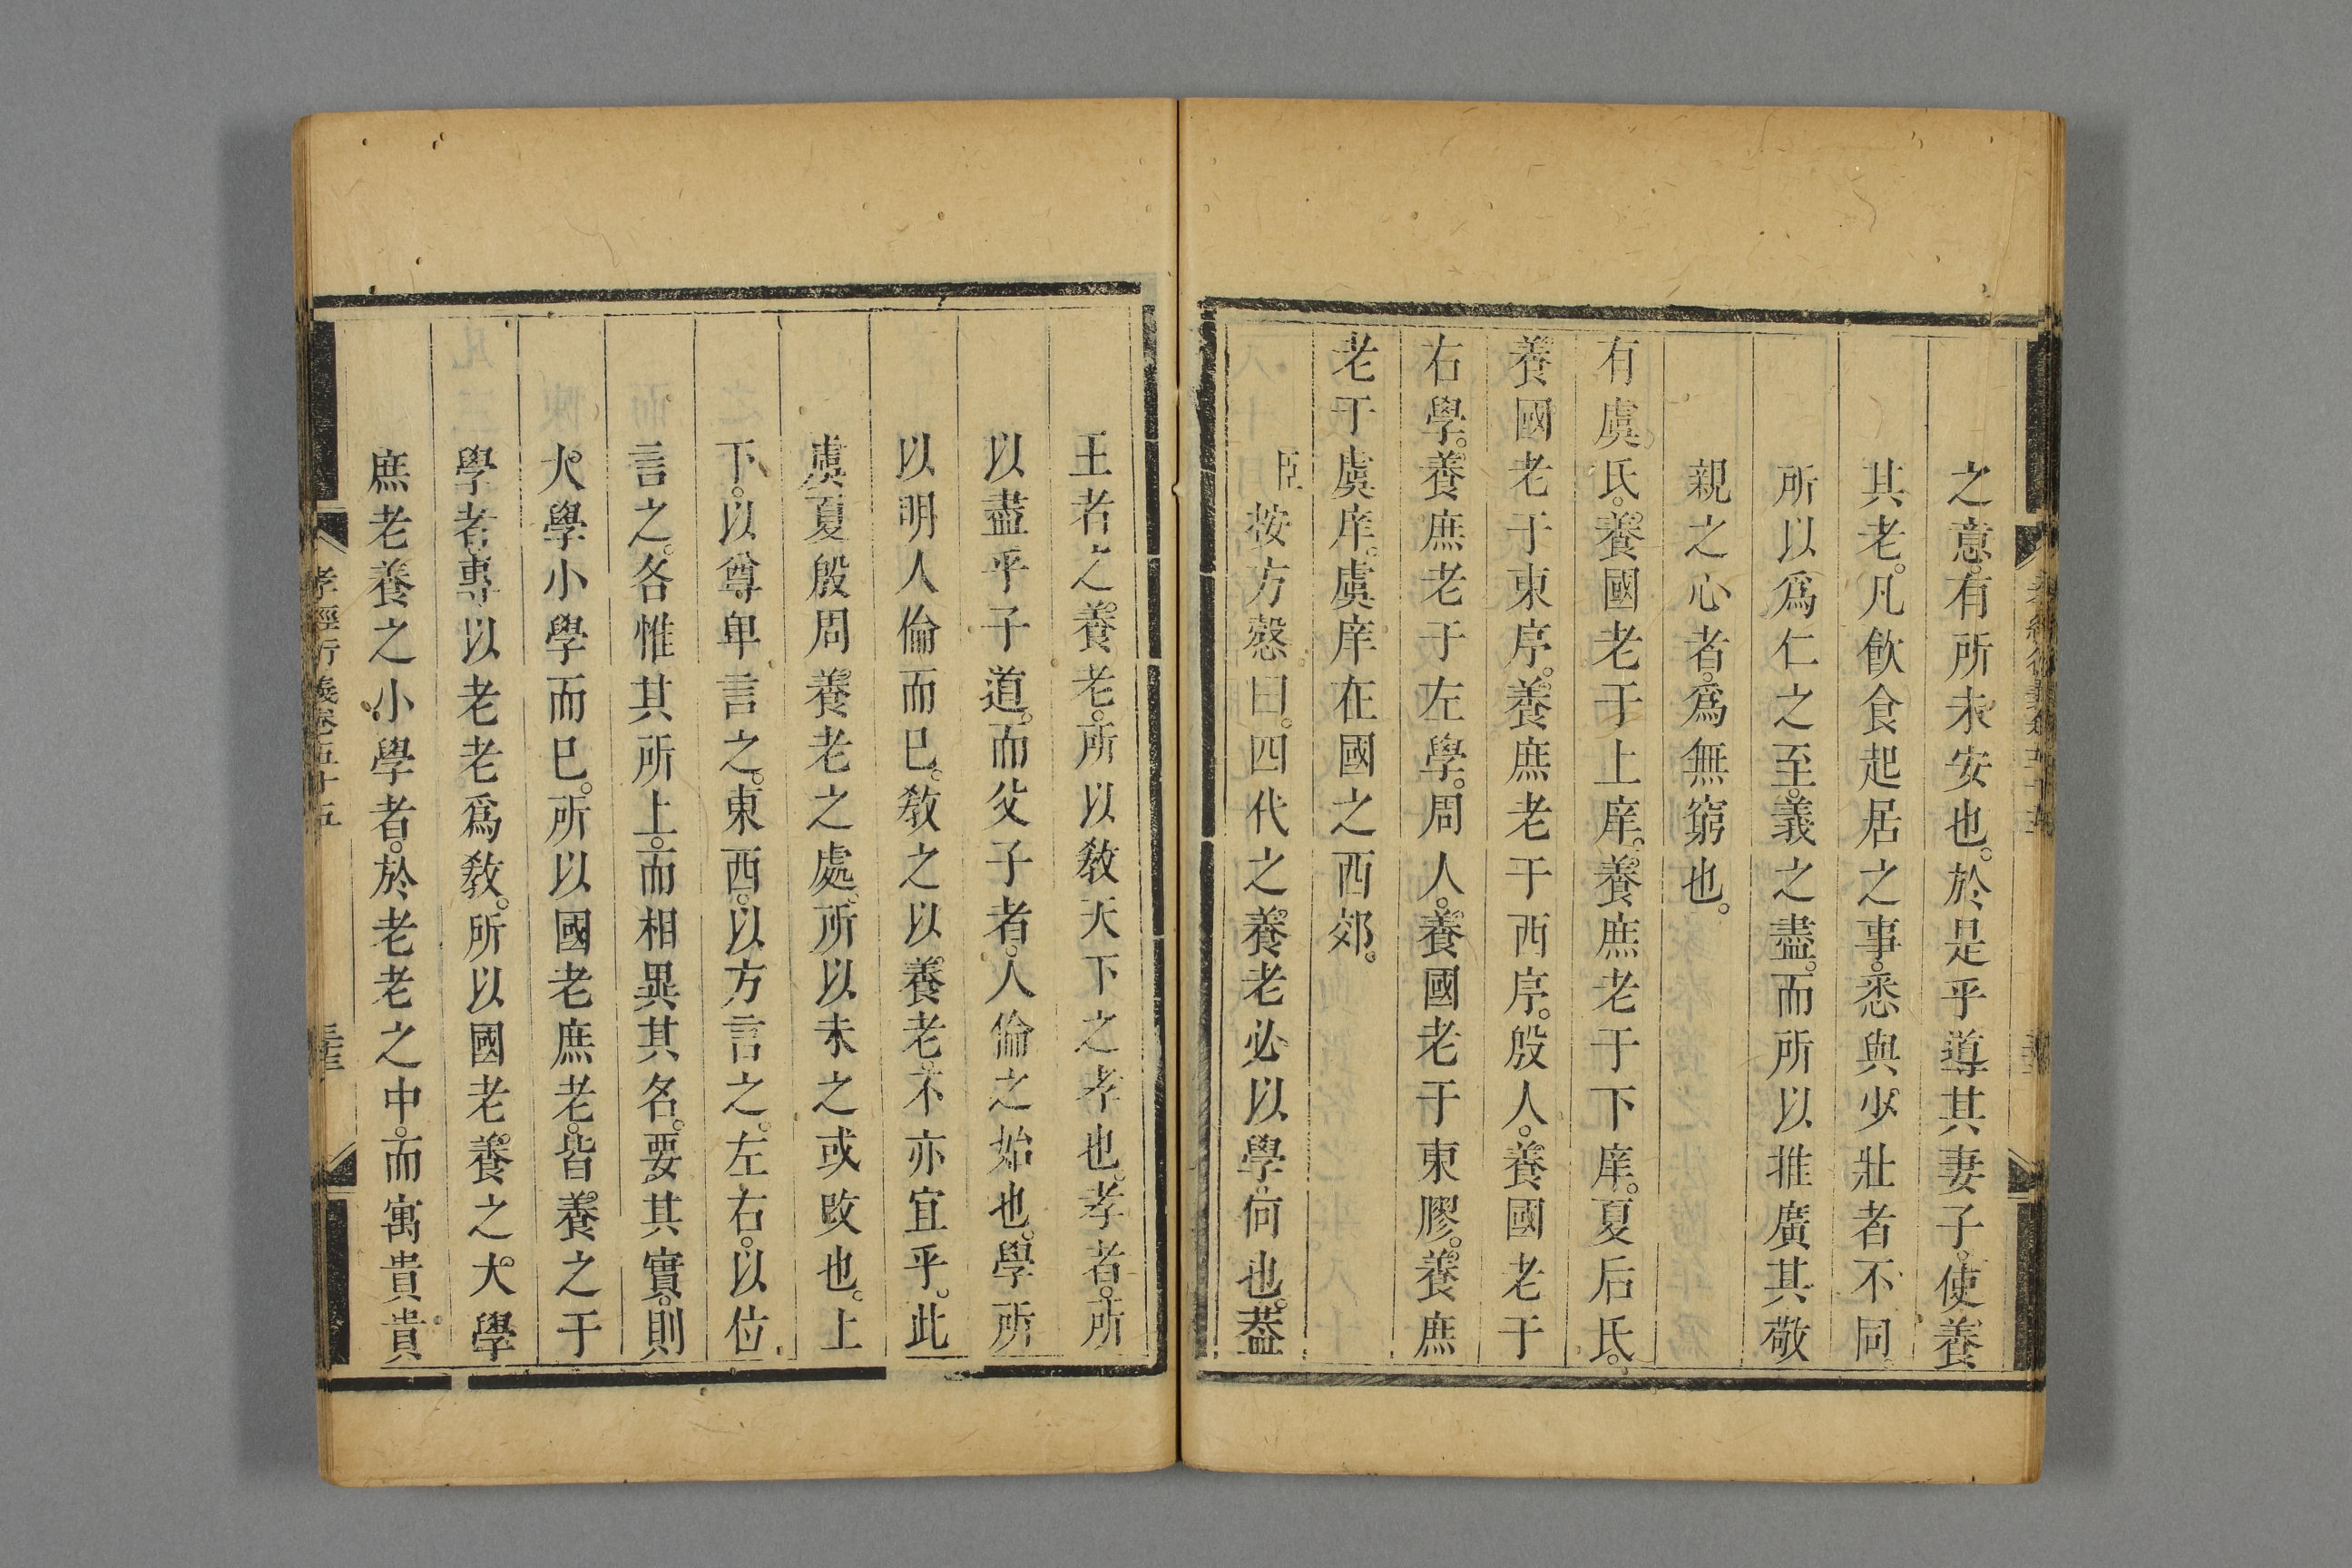 之意。有所未安也。於是乎導其妻子。使養
其老。凡飮食起居之事。悉與少壯者不同。
所以爲仁之至。義之盡。而所以推廣其敬
親之心者。爲無窮也。
有虞氏。養國老于上庠。養庶老于下庠。夏后氏。
養國老于東序。養庶老于西序。殷人。養國老于
右學。養庶老于左學。周人。養國老于東膠。養庶
老于虞庠。虞庠在國之西郊。
臣按方慤曰。四代之養老必以學。何也。葢
王者之養老。所以敎天下之孝也。孝者。所
以盡乎子道。而父子者。人倫之始也。學所
以明人倫而已。敎之以養老。不亦宜乎。此
虞夏殷周養老之處。所以未之或改也。上
下。以尊卑言之。東西。以方言之。左右。以位
言之。各惟其所上。而相異其名。要其實。則
大學小學而已。所以國老庶老。皆養之于
學者。專以老老爲敎。所以國老。養之大學
庶老養之小學者。於老老之中。而寓貴貴
孝經衍義卷五十五